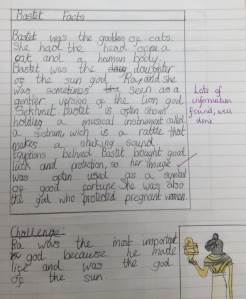 Bastet Facts
Bastet was the goddess of cats.
She had the head of a
cat and a human body.
Bastet was the daughter
of the sun god Ra, and she
was sometimes seen as a
gentler version of the lion god
Sekhmet Bastet is often shown
holding a musical instrument called
a sistrum, wich is a rattle that
makes a shaking sound.
Egyptians belived Bastet bought good
luck and protection, so her image
was often used as a symbol
of good fortune. She was also
the god who protected pregnant women.
Lots of
information
found, well
done
Challenge
Ra was the most important
god because he made
life and was the god
of the sun.